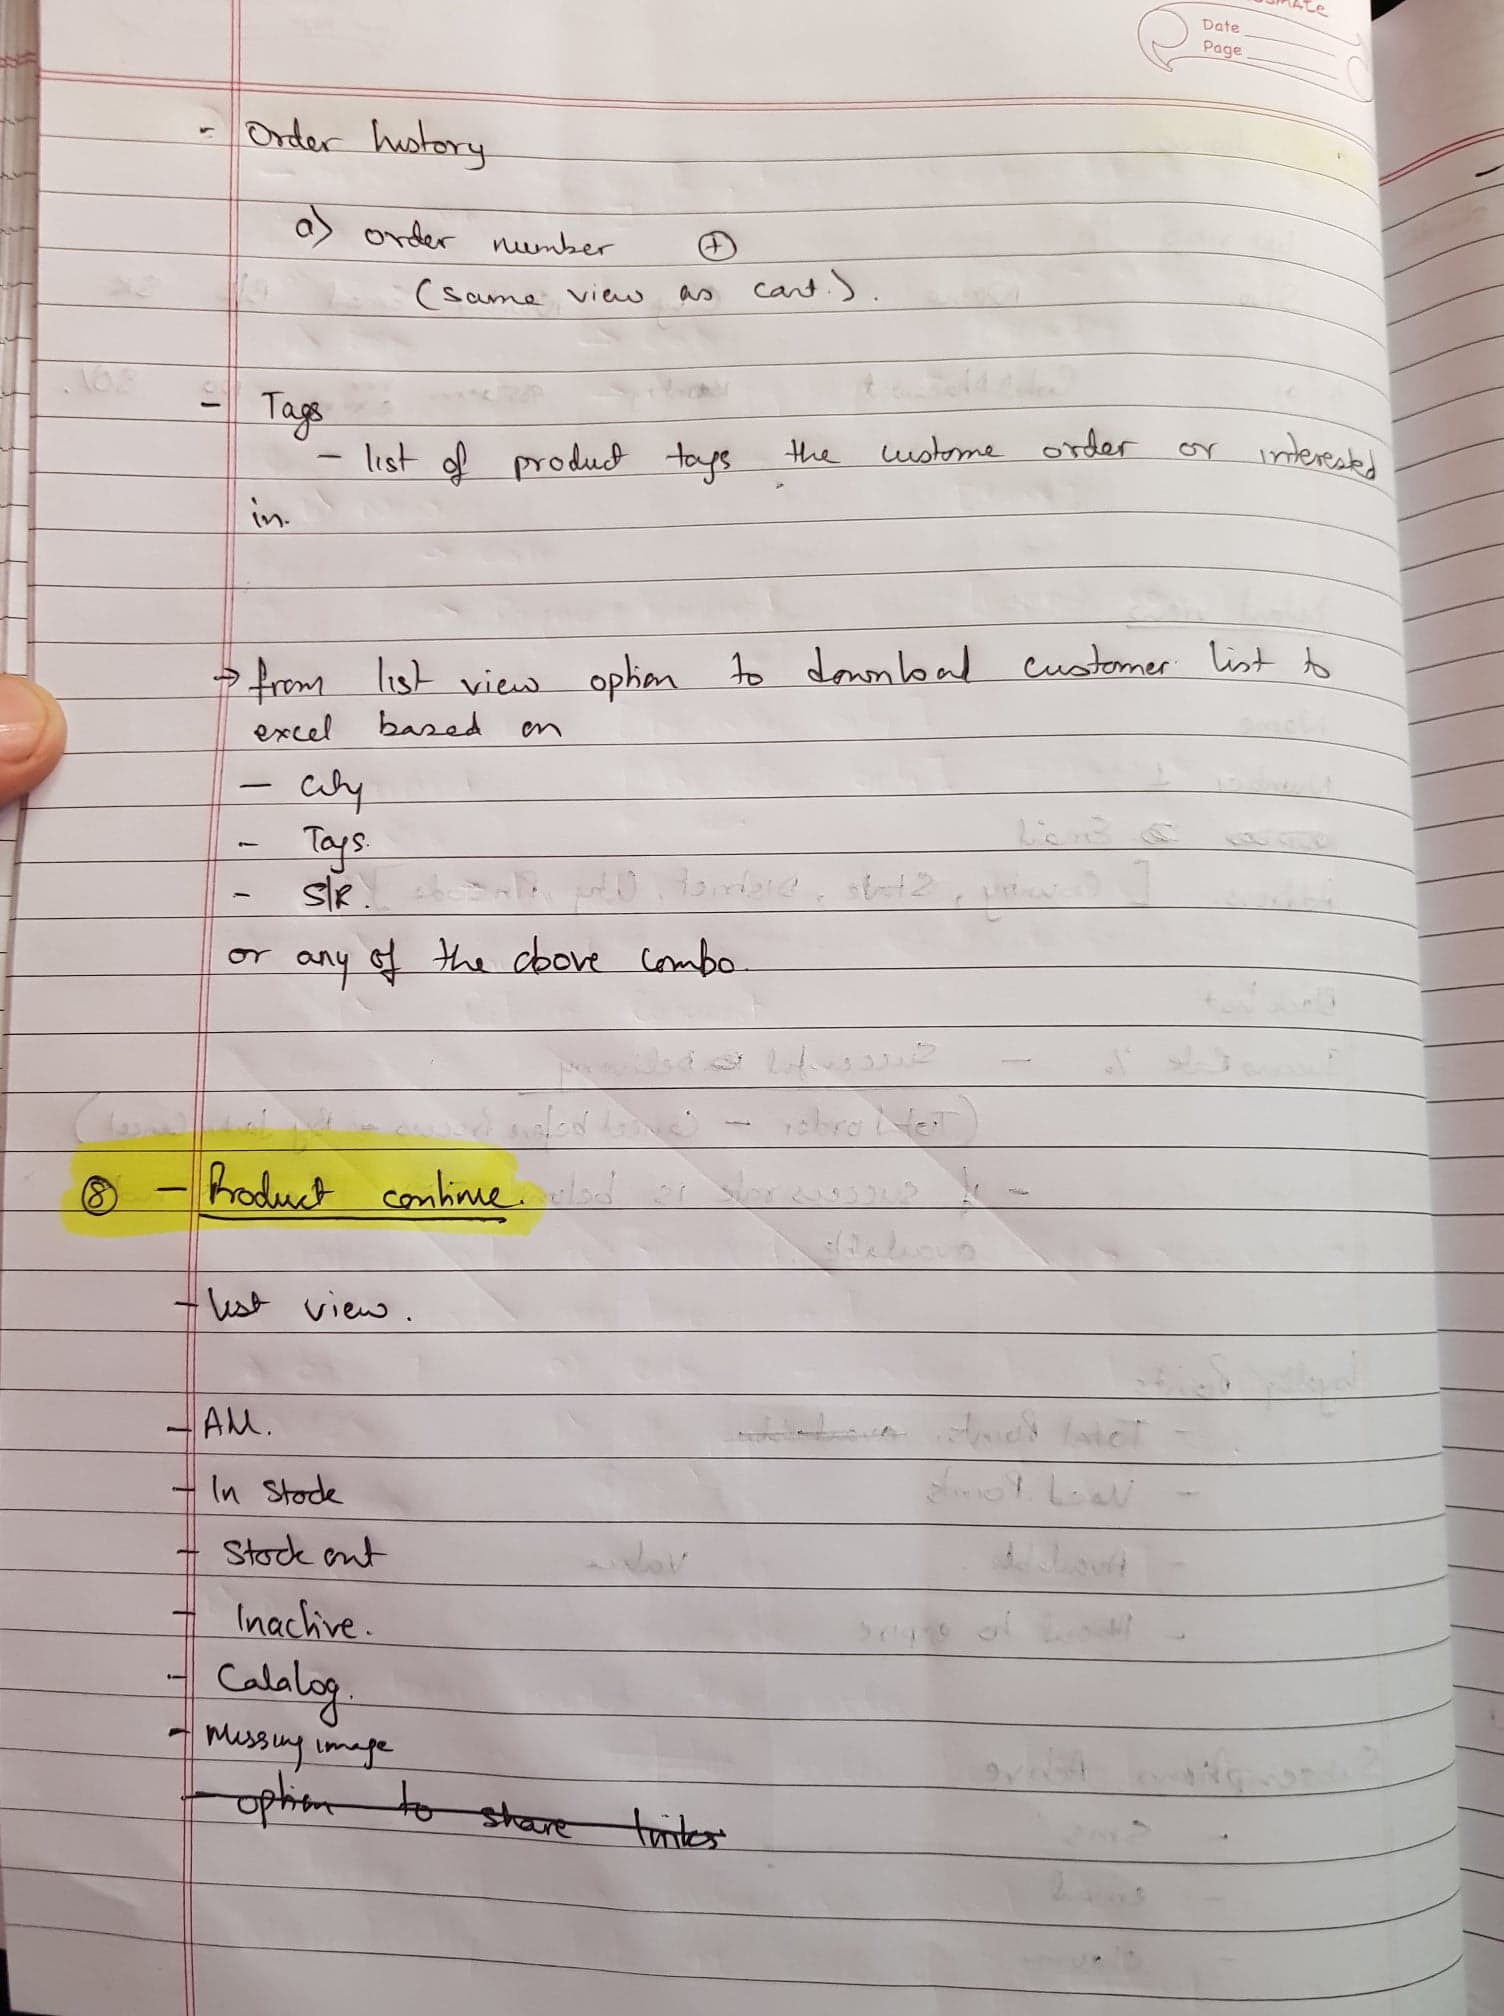 Date
Page
- Order history
a) order number +
(same view as cart.).
- Tags
- list of product tags the custome order or interested
in.
→ from list view option to download customer list to
excel based on
- City
- Tags.
- S/R.
or any of the above combo.
8 - Product continue.
- list view.
- All.
- In Stock
- Stock out
- Inactive.
- Catalog.
- Missing image
- option to share links